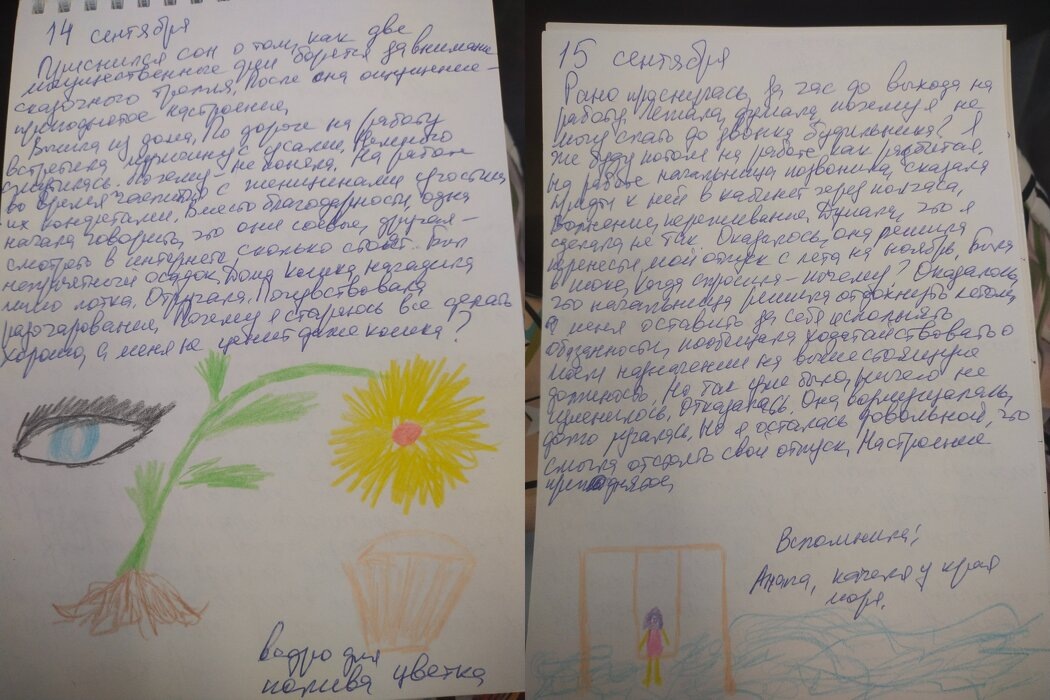 14 сентября
Приснился сон о том, как две
могущественные феи борятся за внимание
сказочного тролля. После сна ощущение –
приподнятое настроение.
Вышла из дома. По дороге на работу
встретила мужчину с усами. Немного
смутилась. Почему – не поняла. На работе
во время чаепития с женщинами угостила
их конфетами. Вместо благодарности, одна
начала говорить, что они соевые, другая –
смотреть в интернете сколько стоят. Был
неприятный осадок. Дома кошка нагадила
мимо лотка. Отругала. Почувствовала
разочарование. Почему я стараюсь всё делать
хорошо, а меня не ценит даже кошка?
ведро для
полива цветка
15 сентября
Рано проснулась, за час до выхода на
работу. Лежала, думала, почему я не
могу спать до звонка будильника? Я
же буду потом на работе как разбитая.
На работе начальница позвонила, сказала
прийти к ней в кабинет через полчаса.
Волнение, переживания. Думала, что я
сделала не так. Оказалось, она решила
перенести мой отпуск с лета на ноябрь. Была
в шоке, когда спросила – почему? Оказалось,
что начальница решила отдохнуть летом,
а меня оставить за себя исполнять
обязанности, пообещала ходатайствовать о
моём назначении на вышестоящую
должность. Но так уже было, ничего не
изменилось. Отказалась. Она возмущалась,
долго ругалась. Но я осталась довольной, что
смогла отстоять свой отпуск. Настроение
приподнятое.
Вспомнила:
Анапа, качеля у края
моря.